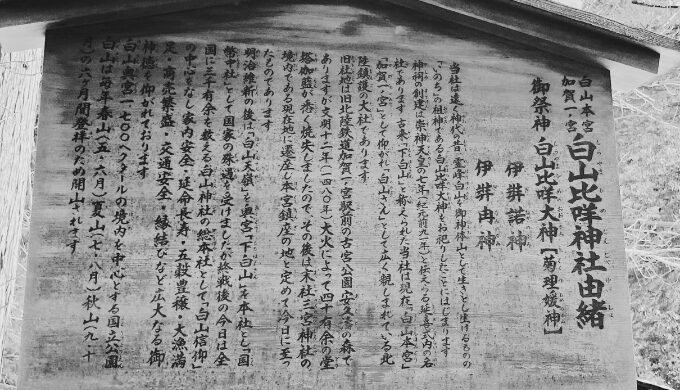 白山本宮
加賀一ノ宮
白山比咩神社由緒
御祭神 白山比咩大神 [菊理媛神]
伊弉諾神
伊弉冉神
当社は遠く神代の昔、霊峰白山を御神体山として生きとし生けるものの
「いのち」の祖神である白山比咩大神をお祀りしたことにはじまります
神祠の創建は崇神天皇の七年(紀元前九一年)と伝える延喜式内の名
社であります 古来「下白山」と称えられた当社は現在「白山本宮」
「加賀一ノ宮」として仰がれ「白山さん」として広く親しまれている北
陸鎮護の大社であります
旧社地は旧北陸鉄道加賀一ノ宮駅前の古宮公園(安久濤の森)で
ありますが文明十二年(一四八〇年)大火によって四十有余の堂
塔伽藍も悉く焼失しましたので、その後は末社三宮神社の
境内である現在地に遷座し本宮鎮座の地と定めて今日に至っ
たものであります
明治維新の後は「白山天嶺」を奥宮「下白山」を本社とし国
幣中社として国家の殊遇を受けましたが終戦後の今日は全
国に三千有余を数える白山神社の総本社として「白山信仰」
の中心をなし家内安全・延命長寿・五穀豊穣・大漁満
足・商売繁盛・交通安全・縁結びなど広大なる御
神徳を仰がれております
白山奥宮一七〇〇ヘクタールの境内を中心とする国立公園
白山は毎年春山(五・六月)夏山(七・八月)秋山(九・十
月)の六カ月間登拝のため開山されます